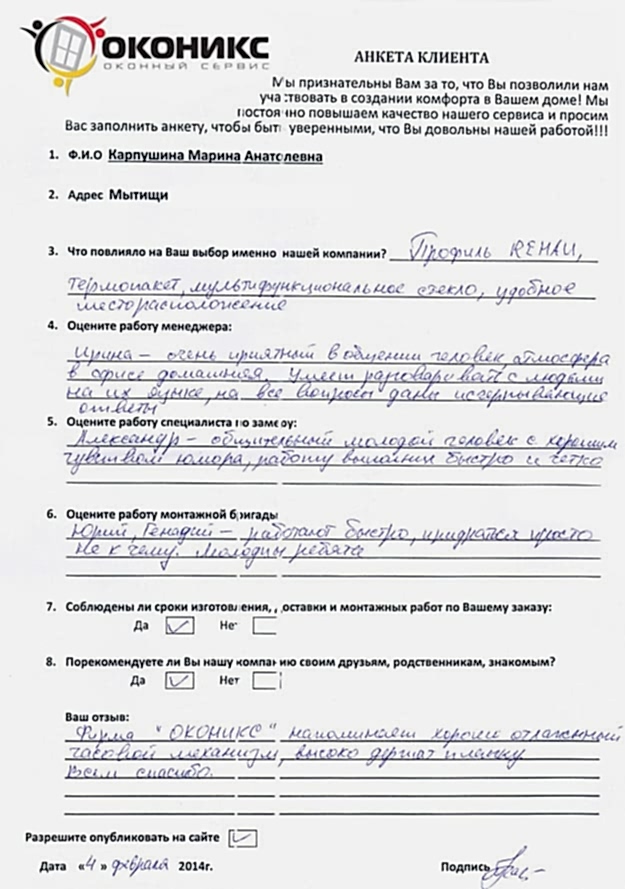 ОКОНИКС
ОКОННЫЙ СЕРВИС
АНКЕТА КЛИЕНТА
Мы признательны Вам за то, что Вы позволили нам
участвовать в создании комфорта в Вашем доме! Мы
постоянно повышаем качество нашего сервиса и просим
Вас заполнить анкету, чтобы быть уверенными, что Вы довольны нашей работой!!!
1. Ф.И.О Карпушина Марина Анатолевна
2. Адрес Мытищи
3. Что повлияло на Ваш выбор именно нашей компании? Профиль REHAU,
термопакет, мультифункциональное стекло, удобное
месторасположение
4. Оцените работу менеджера:
Ирина - очень приятный в общении человек атмосфера
в офисе домашняя. Умеет разговаривать с людьми
на их языке, на все вопросы даны исчерпывающие
ответы
5. Оцените работу специалиста по замеру:
Александр - общительный молодой человек с хорошим
чувством юмора, работу выполнил быстро и четко
6. Оцените работу монтажной бригады
Юрий, Генадий - работают быстро, придраться просто
не к чему. Молодцы ребята
7. Соблюдены ли сроки изготовления, доставки и монтажных работ по Вашему заказу:
Да ✓ Нет
8. Порекомендуете ли Вы нашу компанию своим друзьям, родственникам, знакомым?
Да ✓ Нет
Ваш отзыв:
Фирма "ОКОНИКС" напоминает хорошо отлаженный
часовой механизм, высоко держат планку
Всем спасибо.
Разрешите опубликовать на сайте ✓
Дата «4» февраля 2014г. Подпись